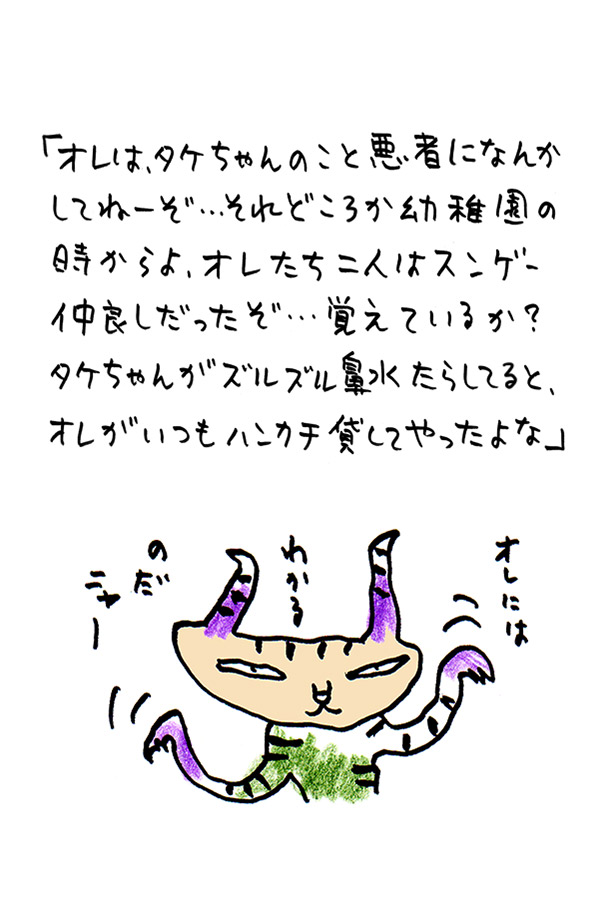 「オレは、タケちゃんのこと悪者になんか
してねーぞ…それどころか幼稚園の
時からよ、オレたち二人はスンゲー
仲良しだったぞ…覚えているか?
タケちゃんがズルズル鼻水たらしてると、
オレがいつもハンカチ貸してやったよな」
オレには
わかる
のだ
ニャー